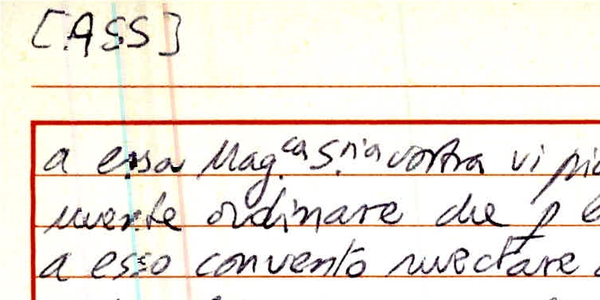 [ASS]
a essa Mag.ca S.ria vostra vi pia
mente ordinare che p
a esso convento